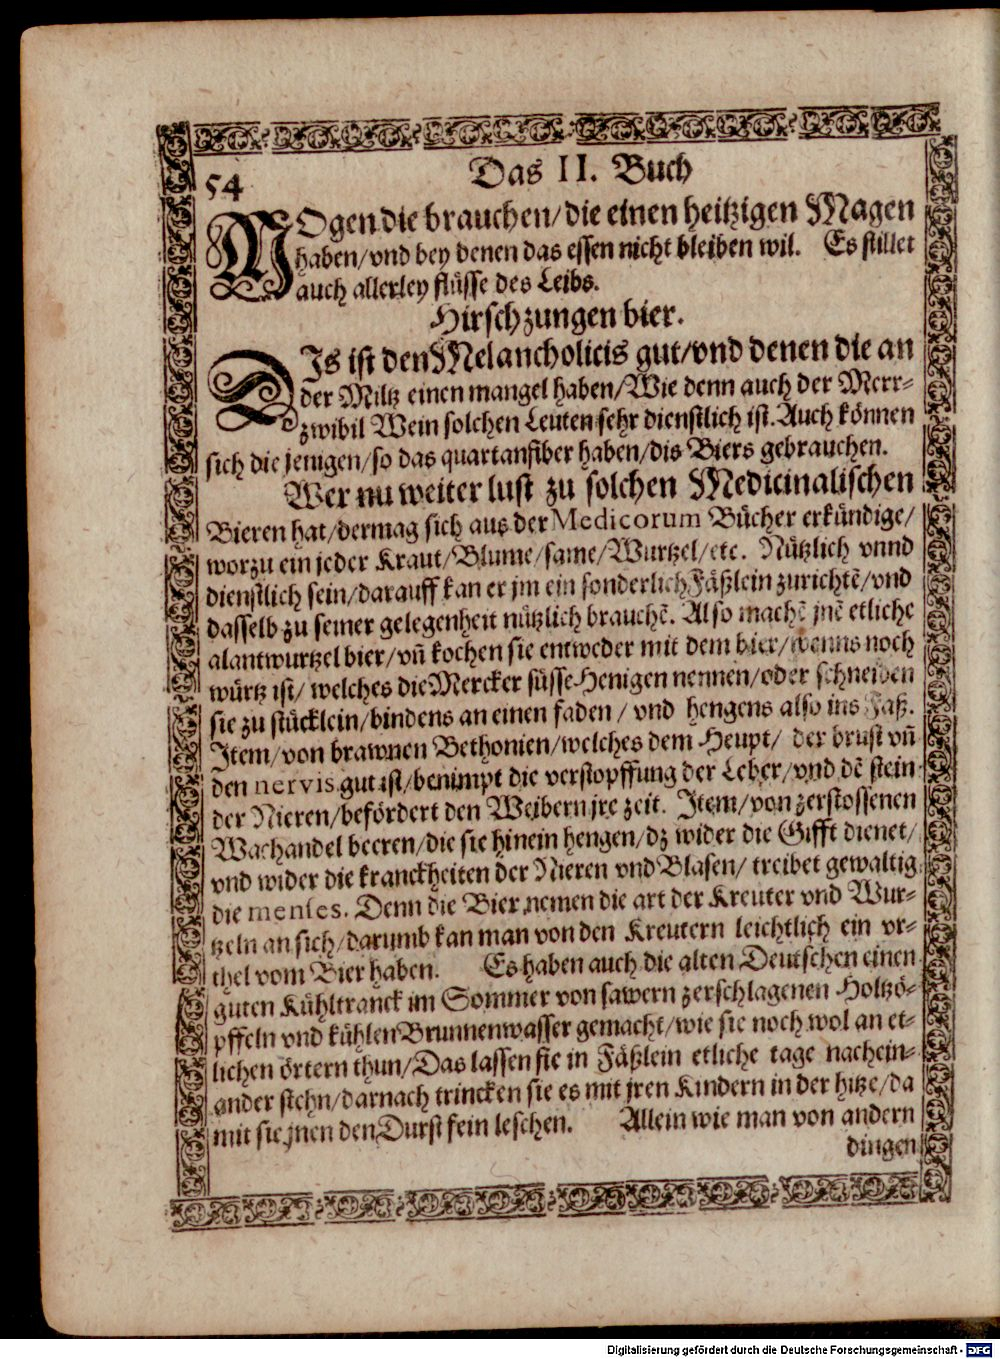 54
Das II. Buch
MOgen die brauchen/die einen heitzigen Magen
haben/vnd bey denen das essen nicht bleiben wil. Es stillet
auch allerley flüsse des Leibs.
Hirschzungen bier.
DIs ist den Melancholicis gut/vnd denen die an
der Miltz einen mangel haben/Wie denn auch der Merr-
zwibil Wein solchen Leuten sehr dienstlich ist. Auch können
sich die jenigen/so das quartanfiber haben/dis Biers gebrauchen.
Wer nu weiter lust zu solchen Medicinalischen
Bieren hat/dermag sich aus der Medicorum Bücher erkündige/
worzu ein jeder Kraut/Blume/same/Wurtzel/etc. Nützlich vnnd
dienstlich sein/darauff kan er jm ein sonderlich Fäßlein zurichtē/vnd
dasselb zu seiner gelegenheit nützlich brauchē. Also machē jnē etliche
alantwurtzel bier/vn̄ kochen sie entweder mit dem bier/wenns noch
würtz ist/ welches die Mercker süsse Henigen nennen/oder schneiden
sie zu stücklein/bindens an einen faden / vnd hengens also ins Faß.
Item/von brawnen Bethonien/welches dem Heupt/ der brust vn̄
den nervis gut ist/benimpt die verstopffung der Leber/vnd dē stein
der Nieren/befördert den Weibern jre zeit. Item/von zerstossenen
Wachandel beeren/die sie hinein hengen/dz wider die Gifft dienet/
vnd wider die kranckheiten der Nieren vnd Blasen/ treibet gewaltig
die menses. Denn die Bier nemen die art der Kreuter vnd Wur-
tzeln an sich/darumb kan man von den Kreutern leichtlich ein vr-
thel vom Bier haben. Es haben auch die alten Deutschen einen
guten Kühltranck im Sommer von sawern zerschlagenen Holtzö-
pffeln vnd kühlen Brunnenwasser gemacht/wie sie noch wol an et-
lichen örtern thun/Das lassen sie in Fäßlein etliche tage nachein-
ander stehn/darnach trincken sie es mit jren Kindern in der hitze/da
mit sie jnen den Durst fein leschen. Allein wie man von andern
dingen
Digitalisierung gefördert durch die Deutsche Forschungsgemeinschaft - DFG